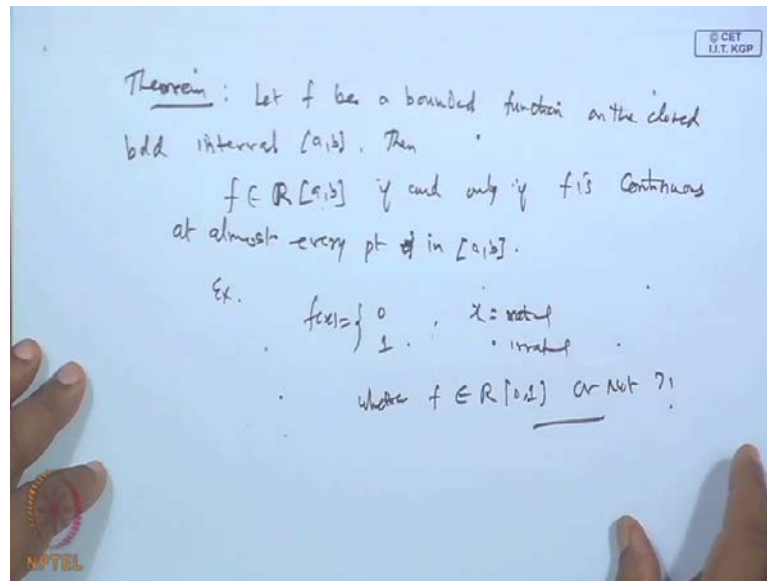 © CET
I.I.T. KGP
Theorem : Let f be a bounded function on the closed
bdd interval [a,b]. Then
f ∈ R [a,b] if and only if f is Continuous
at almost every pt in [a,b].
Ex.
f(x) = { 0 , x = rational
1 . irrational
whether f ∈ R [0,1] or Not ?!
NPTEL